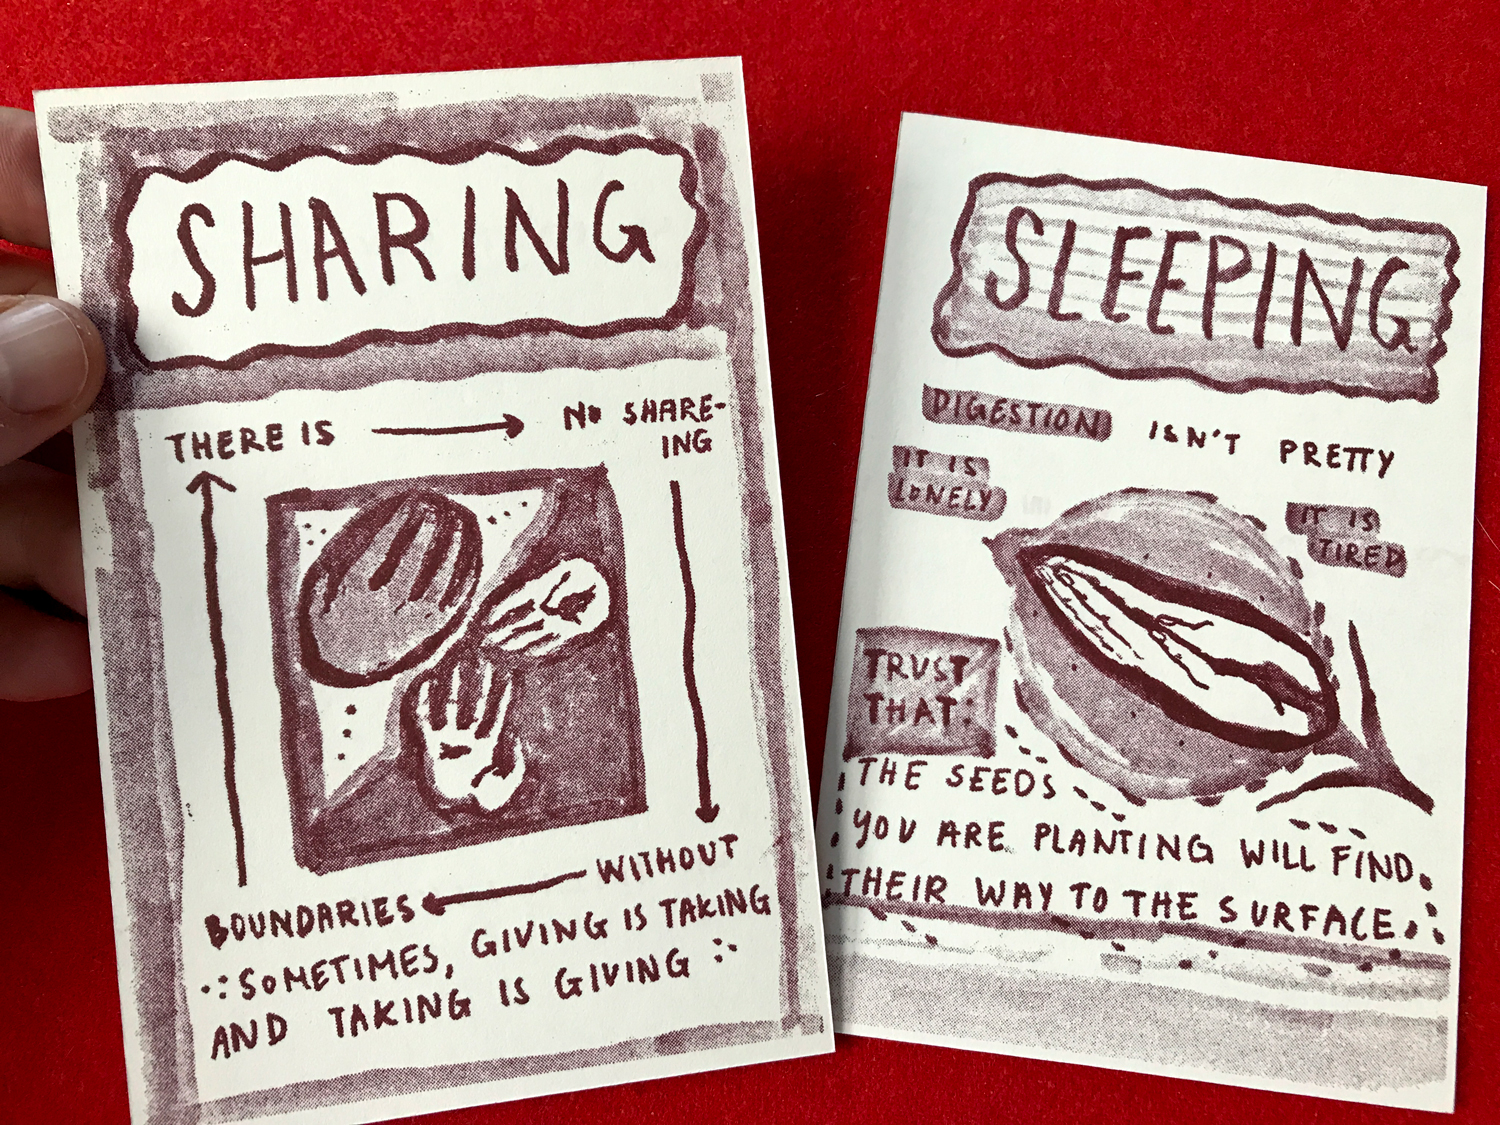 SHARING
THERE IS → NO SHARE-
ING
WITHOUT
BOUNDARIES
SOMETIMES, GIVING IS TAKING
AND TAKING IS GIVING
SLEEPING
DIGESTION ISN'T PRETTY
IT IS
LONELY
IT IS
TIRED
TRUST
THAT:
THE SEEDS
YOU ARE PLANTING WILL FIND
THEIR WAY TO THE SURFACE